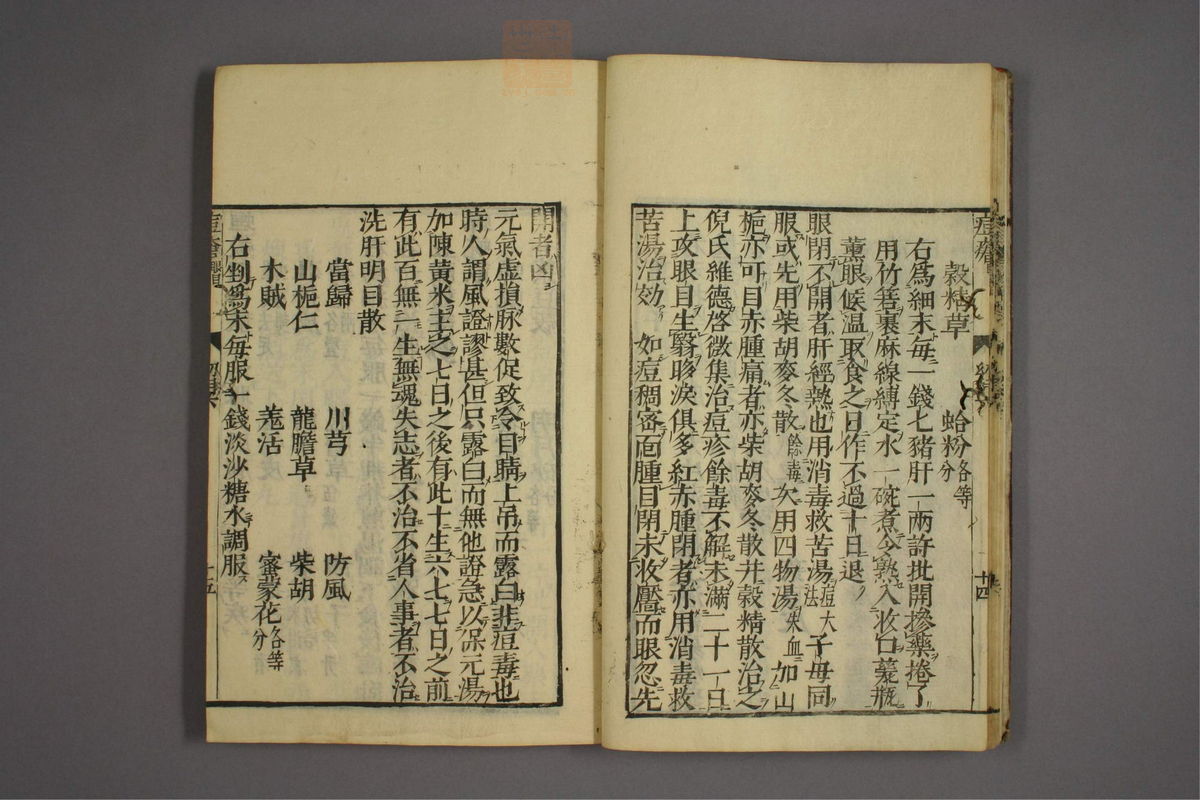 穀精草　蛤粉各等分
右為細末毎一錢七豬肝一兩許批開摻藥捲了
用竹箬裹麻線縛定水一碗煮令熟入收口甆瓶
薰眼候温取食之日作不過十日退
眼閉不開者肝經熱也用消毒救苦湯痘大法子母同
服或先用柴胡麥冬散餘毒次用四物湯失血加山
梔亦可目赤腫痛者亦柴胡麥冬散并穀精散治之
倪氏維德啓微集治痘疹餘毒不解未滿二十一日
上攻眼目生翳眵淚俱多紅赤腫閉者亦用消毒救
苦湯治効　如痘稠密面腫目閉未收靨而眼忽先
十四
開者凶
元氣虚損脉數促致令目睛上吊而露白非痘毒也
時人謂風證謬甚但只露白而無他證急以保元湯
加陳黄米主之七日之後有此十生六七七日之前
有此百無一生無魂失志者不治不省人事者不治
洗肝明目散
當歸　川芎　防風
山梔仁　龍膽草　柴胡
木賊　羗活　蜜蒙花各等分
右剉為末毎服一錢淡沙糖水調服
十五